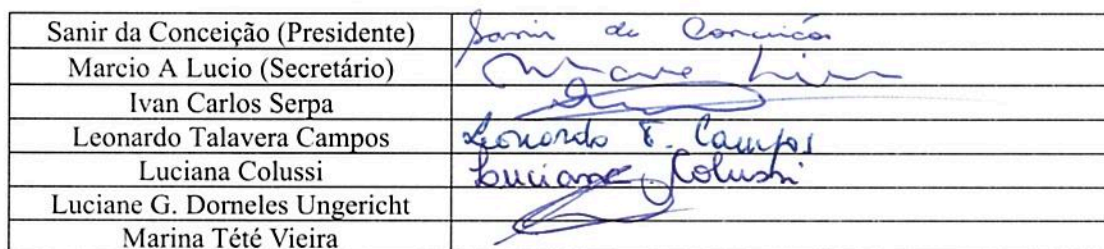 Sanir da Conceição (Presidente) Sanir da Conceição
Marcio A Lucio (Secretário)
Ivan Carlos Serpa
Leonardo Talavera Campos Leonardo T. Campos
Luciana Colussi Luciana Colussi
Luciane G. Dorneles Ungericht
Marina Tété Vieira